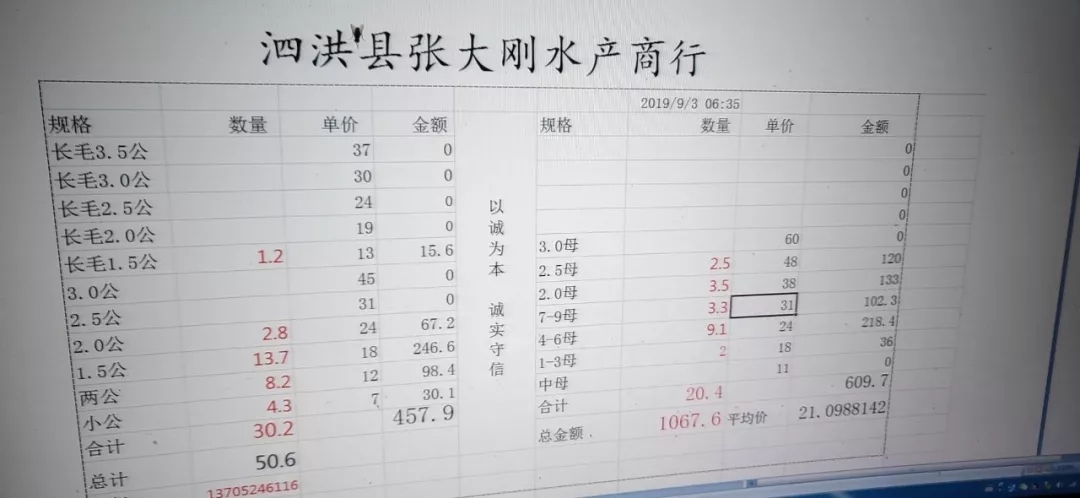 泗洪县张大刚水产商行
规格 数量 单价 金额
长毛3.5公 37 0
长毛3.0公 30 0
长毛2.5公 24 0
长毛2.0公 19 0
长毛1.5公 1.2 13 15.6
3.0公 45 0
2.5公 31 0
2.0公 2.8 24 67.2
1.5公 13.7 18 246.6
两公 8.2 12 98.4
小公 4.3 7 30.1
合计 30.2 457.9
总计 50.6
13705246116
以诚为本 诚实守信
2019/9/3 06:35
规格 数量 单价 金额
0
0
0
0
3.0母 60 0
2.5母 2.5 48 120
2.0母 3.5 38 133
7-9母 3.3 31 102.3
4-6母 9.1 24 218.4
1-3母 2 18 36
中母 11 0
合计 20.4 609.7
总金额 1067.6 平均价 21.0988142